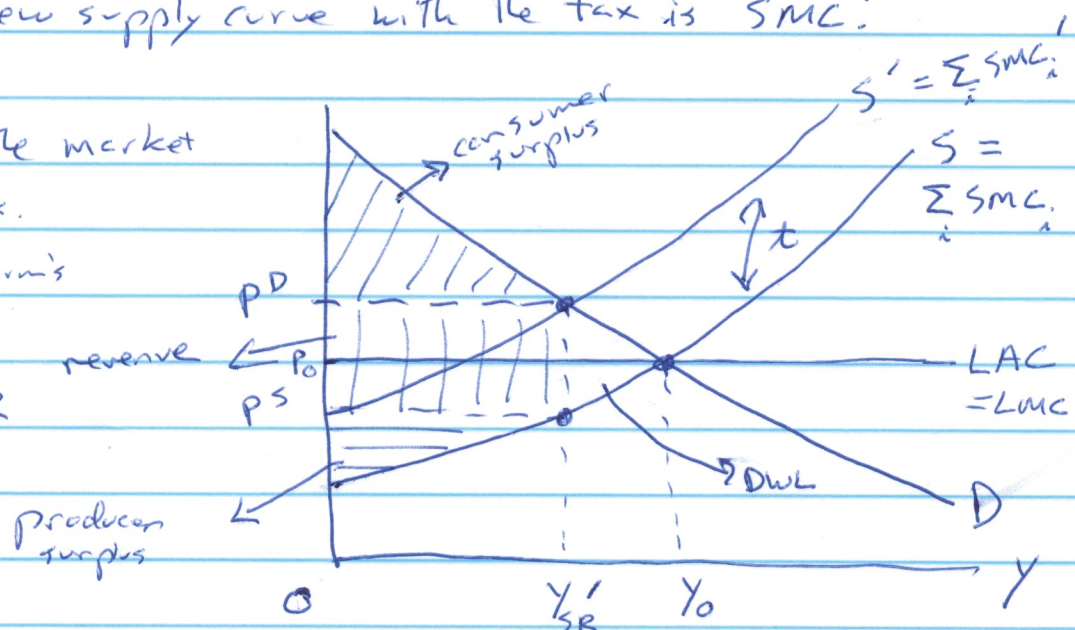 ew supply curve with the tax is SMC.
S' = Σ SMC
i i
he market
consumer
surplus
S =
Σ SMC
i i
t
rm's
p^D
revenue
P₀
LAC
= LMC
p^S
DWL
D
producer
surplus
O
Y'
SR
Y₀
Y